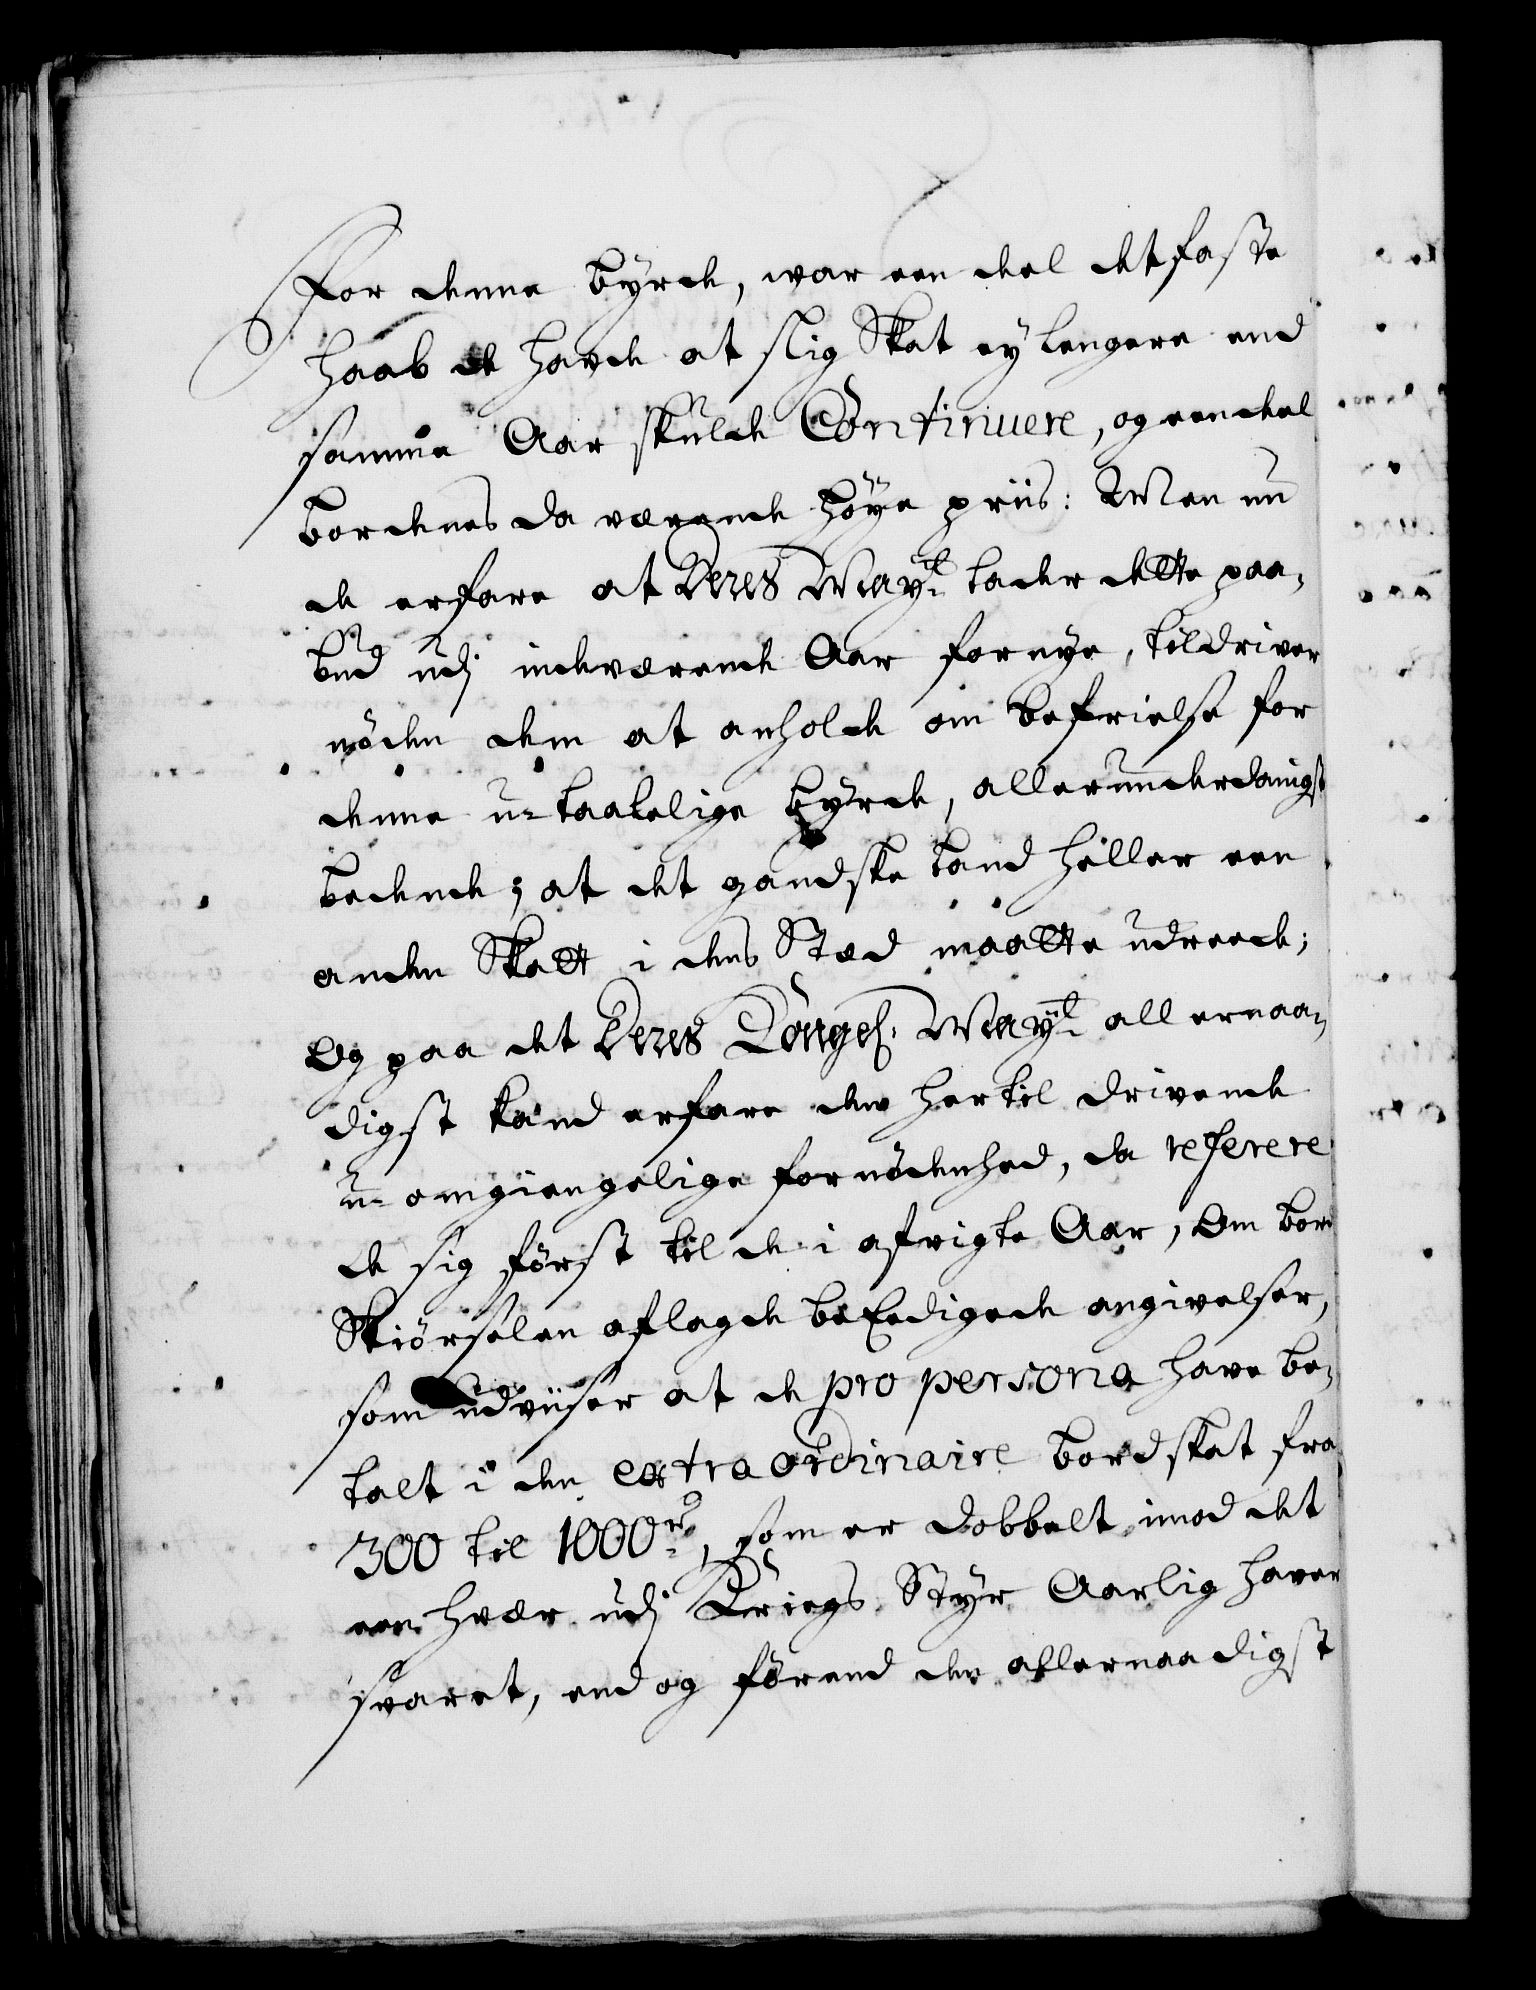 For denne byrde, war een deel det faste
haab de hafde at slig Skat ey lengere end
samme Aar skulde Continuere, og een deel
bordenes da værende høye priis: Men nu
de erfare at Deres May:tt lader dette paa,
bud udj indeværende Aar fornye, tildriver
nøden dem at anholde om befrielse for
denne u-taalelige byrde, allerunderdanigst
bedende; at det gandske land heller een
anden Skatt i dens Sted maatte udreede;
Og paa det Deres Kongel: May:tt allernaa,
digst kand erfare den hertil drivende
u-omgiengelige fornødenhed, da referere
de sig først til de i afvigte Aar, Om bord
Skiørselen aflagde beEedigede angivelser,
som udviiser at de pro persona have be,
talt i den extraordinaire bordskat fra
300 til 1000 rd, som er dobbelt imod det
een hver udj Kriegs Styr Aarlig haver
svaret, endog førend den allernaadigst